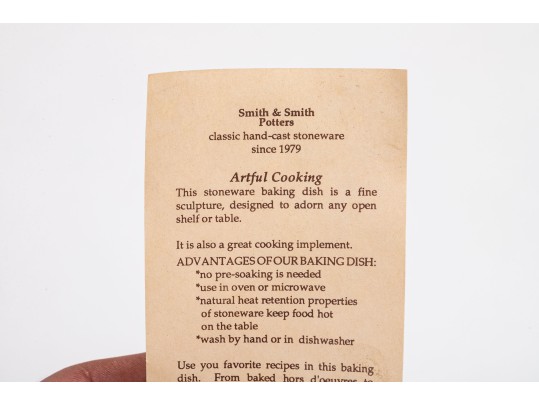 Smith & Smith
Potters
classic hand-cast stoneware
since 1979
Artful Cooking
This stoneware baking dish is a fine
sculpture, designed to adorn any open
shelf or table.
It is also a great cooking implement.
ADVANTAGES OF OUR BAKING DISH:
*no pre-soaking is needed
*use in oven or microwave
*natural heat retention properties
of stoneware keep food hot
on the table
*wash by hand or in dishwasher
Use you favorite recipes in this baking
dish. From baked hors d'oeuvres to